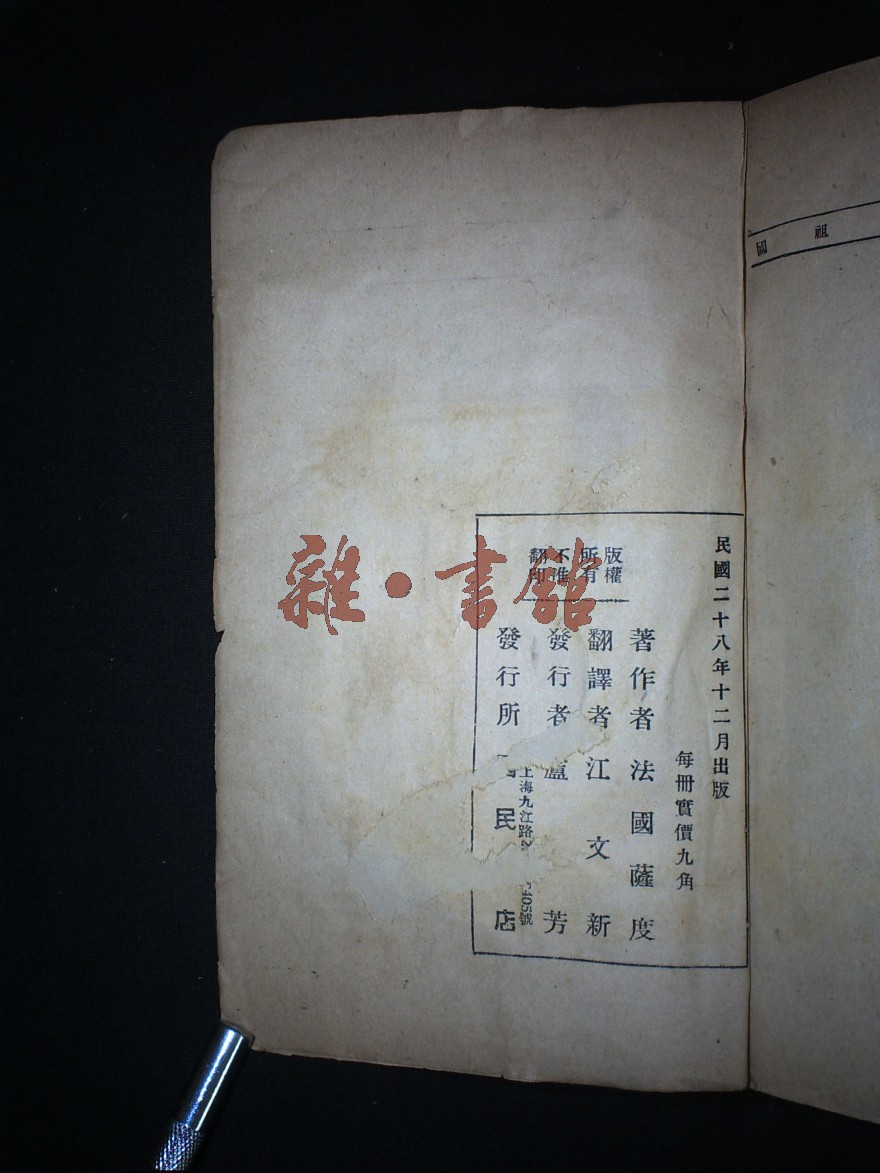 祖國
民國二十八年十二月出版
每冊實價九角
版權所有
不准翻印
著作者 法國薩度
翻譯者 江文新
發行者 盧 芳
發行所 民 店
上海九江路 405號
雜·書館